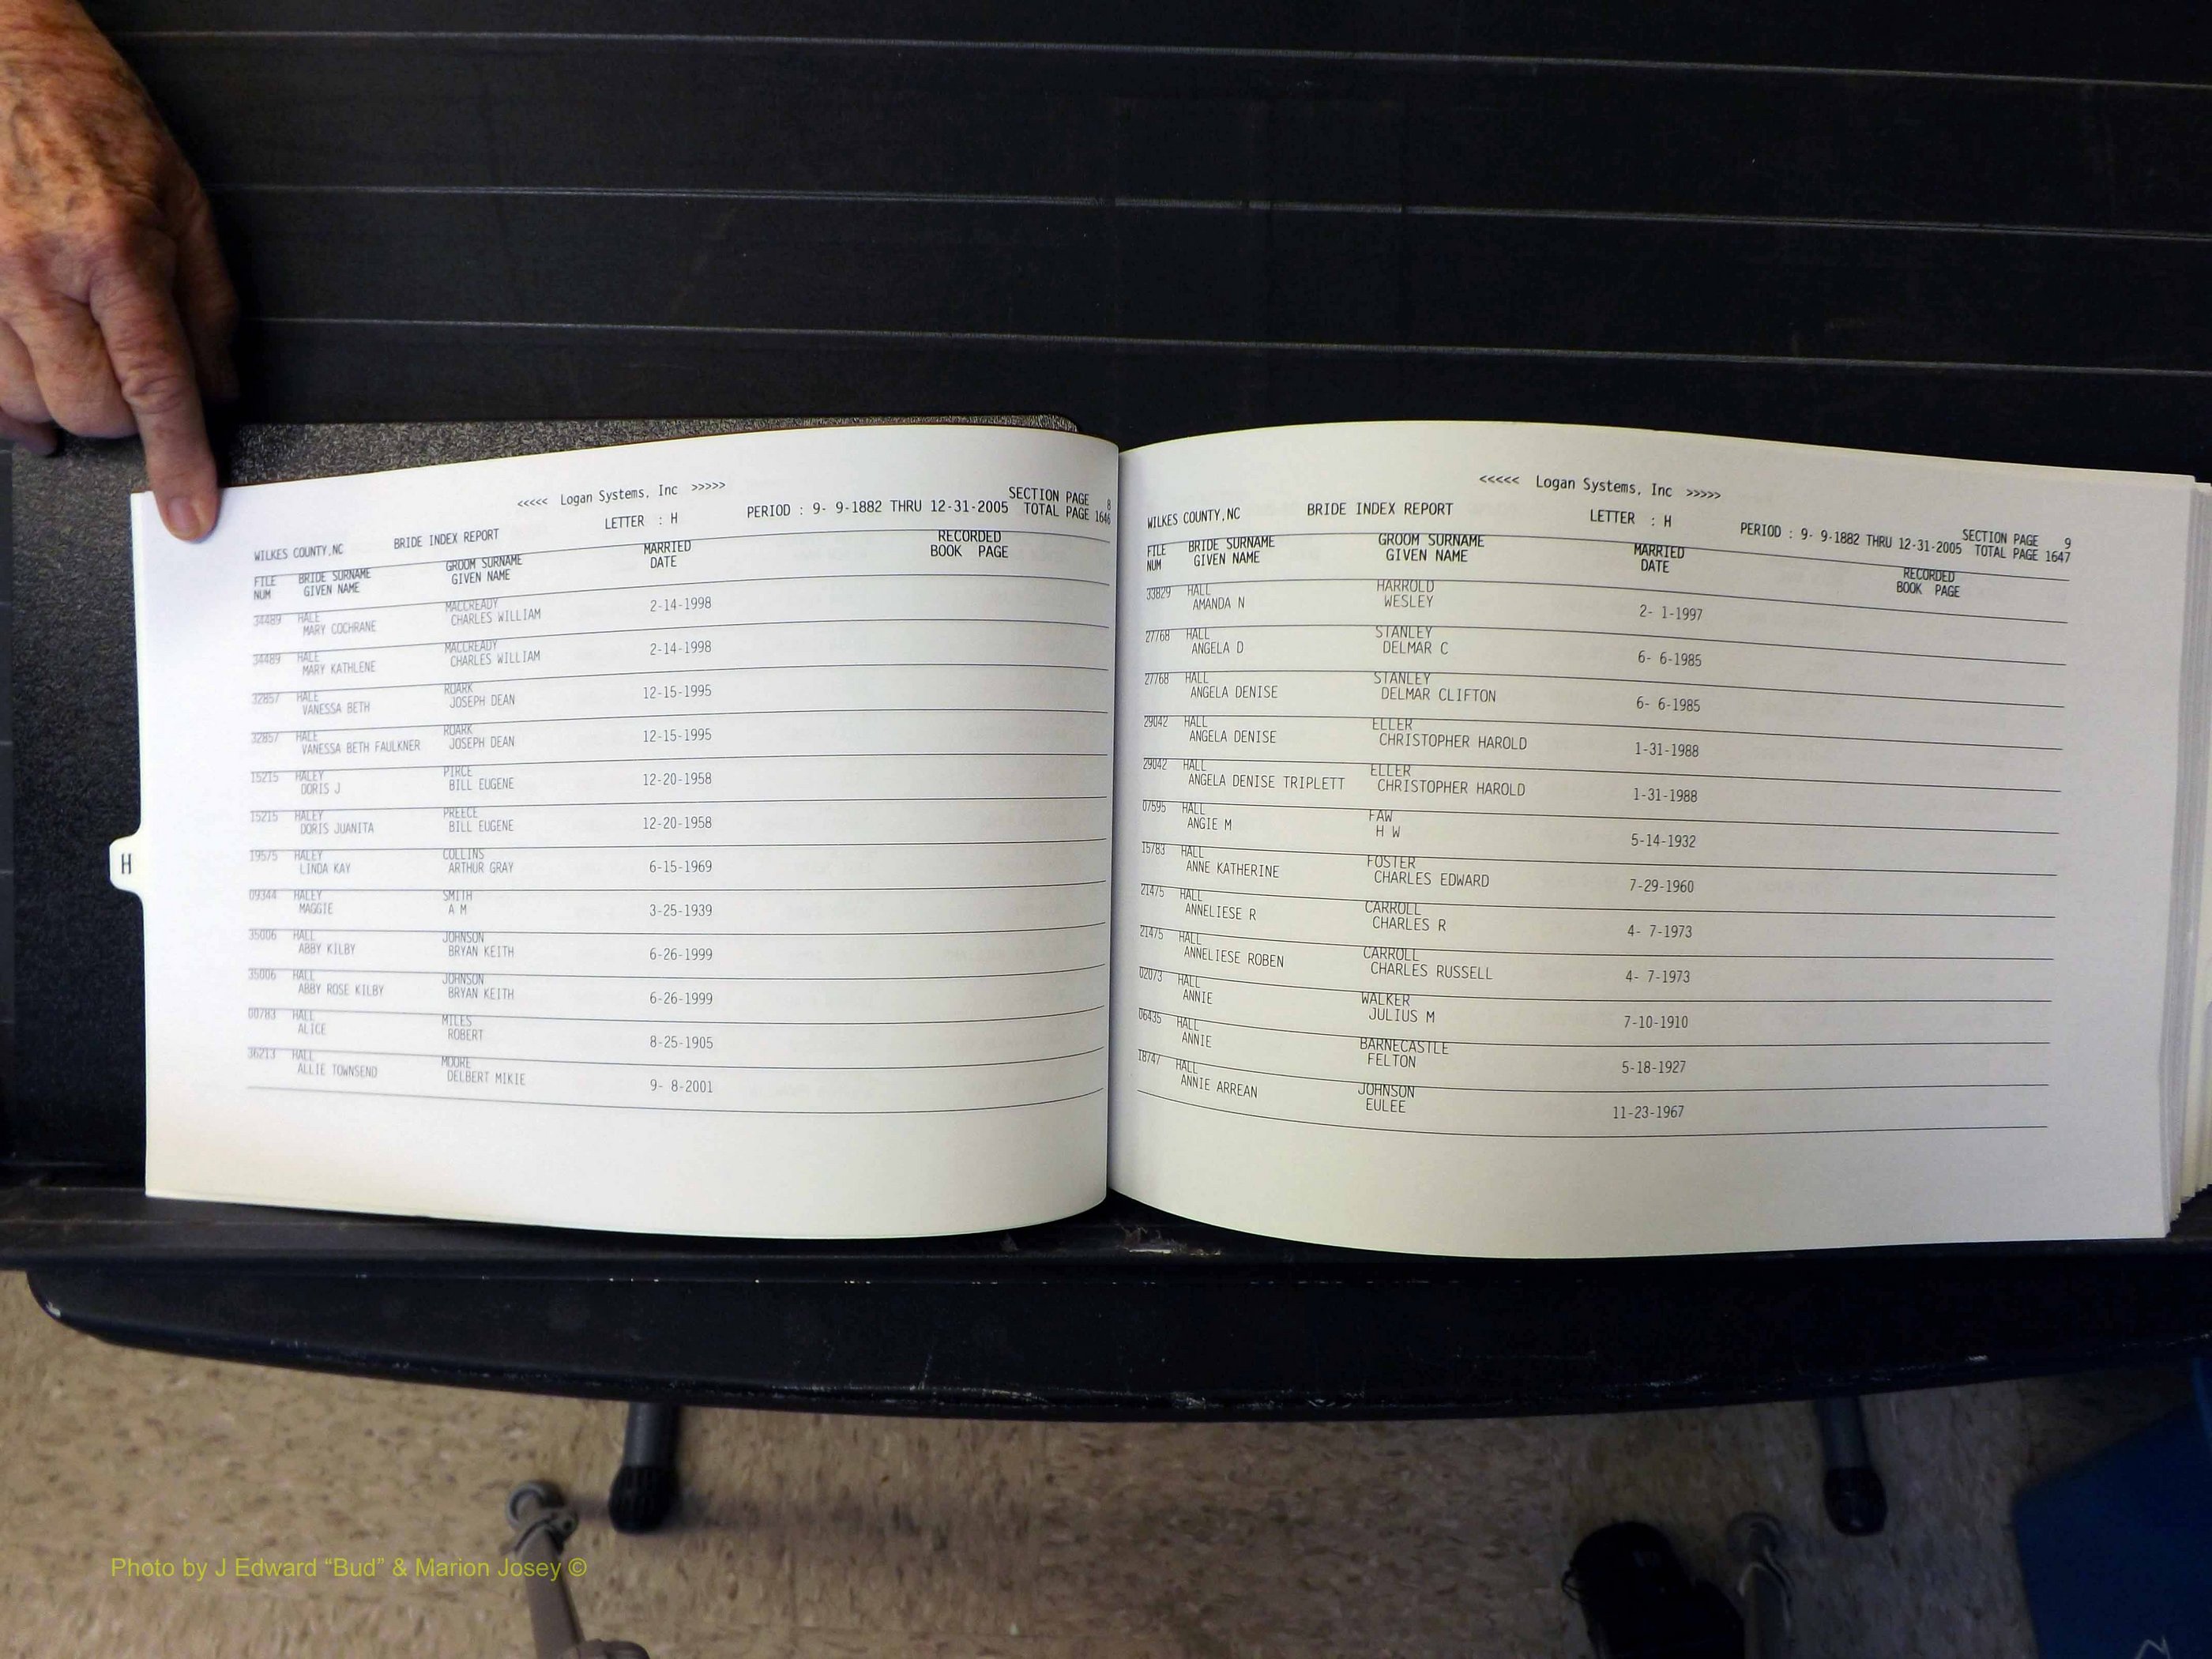 <<<<< Logan Systems, Inc >>>>>
SECTION PAGE 8
WILKES COUNTY,NC BRIDE INDEX REPORT LETTER : H PERIOD : 9- 9-1882 THRU 12-31-2005 TOTAL PAGE 1646
FILE BRIDE SURNAME GROOM SURNAME MARRIED RECORDED
NUM GIVEN NAME GIVEN NAME DATE BOOK PAGE
34489 HALE MACCREADY
MARY COCHRANE CHARLES WILLIAM 2-14-1998
34489 HALE MACCREADY
MARY KATHLENE CHARLES WILLIAM 2-14-1998
32857 HALE ROARK
VANESSA BETH JOSEPH DEAN 12-15-1995
32857 HALE ROARK
VANESSA BETH FAULKNER JOSEPH DEAN 12-15-1995
15215 HALEY PIRCE
DORIS J BILL EUGENE 12-20-1958
15215 HALEY PREECE
DORIS JUANITA BILL EUGENE 12-20-1958
19575 HALEY COLLINS
LINDA KAY ARTHUR GRAY 6-15-1969
09344 HALEY SMITH
MAGGIE A M 3-25-1939
35006 HALL JOHNSON
ABBY KILBY BRYAN KEITH 6-26-1999
35006 HALL JOHNSON
ABBY ROSE KILBY BRYAN KEITH 6-26-1999
00783 HALL MILES
ALICE ROBERT 8-25-1905
36213 HALL MOORE
ALLIE TOWNSEND DELBERT MIKIE 9- 8-2001
H
<<<<< Logan Systems, Inc >>>>>
SECTION PAGE 9
WILKES COUNTY,NC BRIDE INDEX REPORT LETTER : H PERIOD : 9- 9-1882 THRU 12-31-2005 TOTAL PAGE 1647
FILE BRIDE SURNAME GROOM SURNAME MARRIED RECORDED
NUM GIVEN NAME GIVEN NAME DATE BOOK PAGE
33829 HALL HARROLD
AMANDA N WESLEY 2- 1-1997
27768 HALL STANLEY
ANGELA D DELMAR C 6- 6-1985
27768 HALL STANLEY
ANGELA DENISE DELMAR CLIFTON 6- 6-1985
29042 HALL ELLER
ANGELA DENISE CHRISTOPHER HAROLD 1-31-1988
29042 HALL ELLER
ANGELA DENISE TRIPLETT CHRISTOPHER HAROLD 1-31-1988
07595 HALL FAW
ANGIE M H W 5-14-1932
15783 HALL FOSTER
ANNE KATHERINE CHARLES EDWARD 7-29-1960
21475 HALL CARROLL
ANNELIESE R CHARLES R 4- 7-1973
21475 HALL CARROLL
ANNELIESE ROBEN CHARLES RUSSELL 4- 7-1973
02073 HALL WALKER
ANNIE JULIUS M 7-10-1910
06435 HALL BARNECASTLE
ANNIE FELTON 5-18-1927
18747 HALL JOHNSON
ANNIE ARREAN EULEE 11-23-1967
Photo by J Edward “Bud” & Marion Josey ©